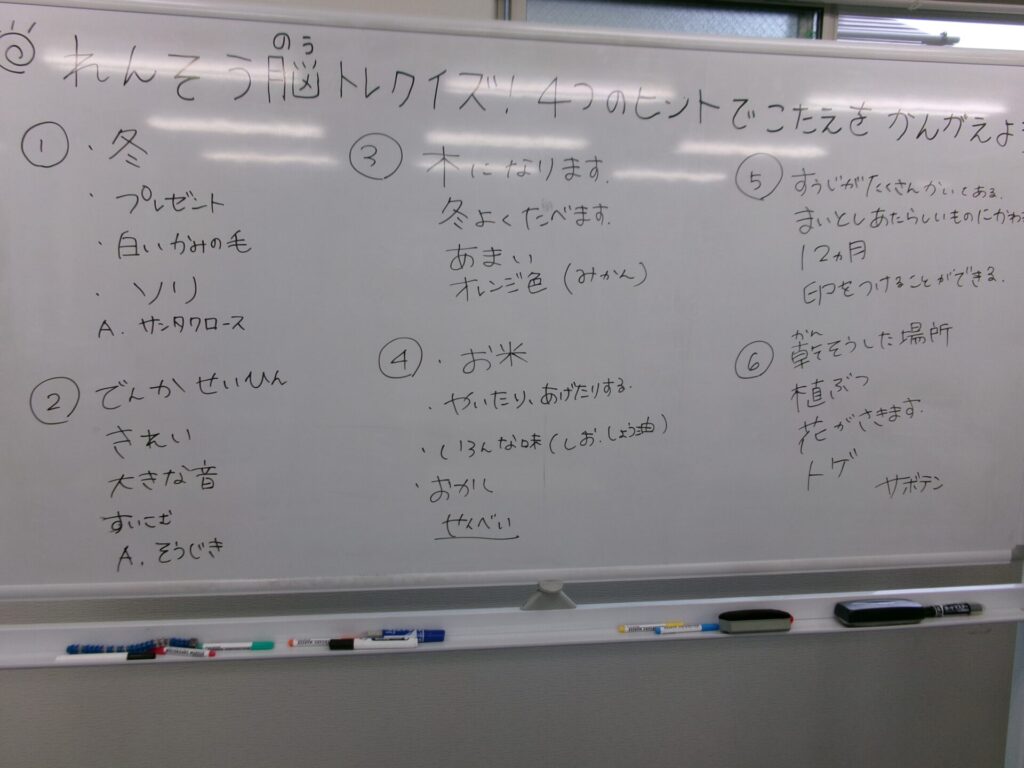 れんそう脳トレクイズ!4つのヒントでこたえをかんがえよ
のう
① ・冬
・プレゼント
・白いかみの毛
・ソリ
A. サンタクロース
② でんかせいひん
きれい
大きな音
すいこむ
A. そうじき
③ 木になります.
冬よくたべます.
あまい
オレンジ色(みかん)
④ ・お米
・やいたり、あげたりする.
・いろんな味(しお.しょう油)
・おかし
せんべい
⑤ すうじがたくさんかいてある.
まいとしあたらしいものにかわ
12ヵ月
印をつけることができる.
⑥ 乾そうした場所
かん
植ぶつ
花がさきます.
トゲ
サボテン